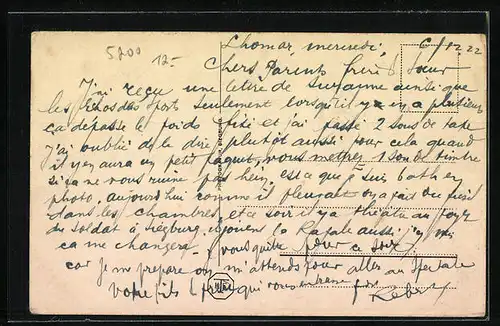 5200
12-
Lhomar, mercredi, 6/12.22
Chers Parents frère & Sœur
J'ai reçu une lettre de Suzanne ainsi que
les Echos des Sport seulement lorsqu'il y en a plusieurs
ça dépasse le poids fixé et j'ai payé 2 sous de taxe
J'ai oublié de le dire plutôt aussi pour cela quand
il y en aura un petit paquet, vous mettrez 1 sou de timbre
si ça ne vous ruine pas hein, est ce que je suis b
photo, aujourd'hui comme il pleuvait on a fait du
dans les chambres, et ce soir il y a théâtre au foyer
du soldat à Siegburg ils jouent la Rafale aussi j'y vais
ça me changera. je vous quitte pour ce soir
car je me prépare on m'attends pour aller au spectacle
votre fils & frère qui vous embrasse fort
Robert